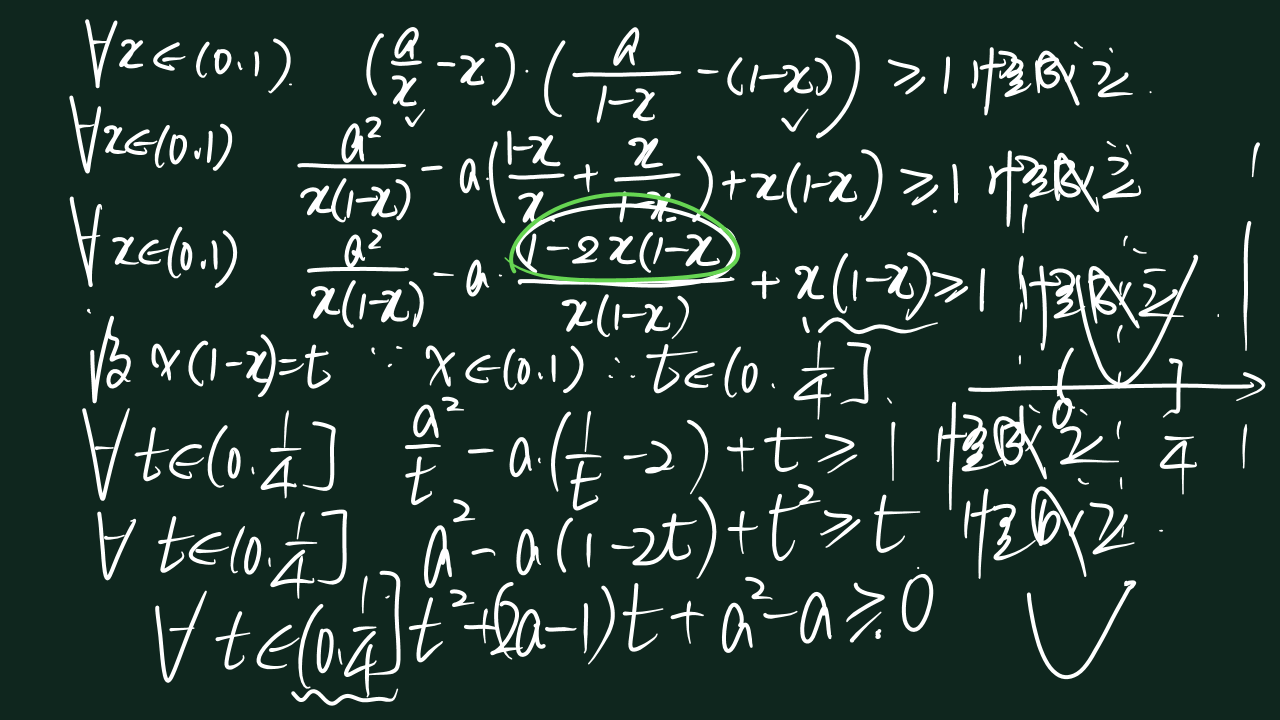 ∀x∈(0,1) (a/x - x)·(a/(1-x) - (1-x)) ≥ 1 恒成立.
∀x∈(0,1) a²/(x(1-x)) - a·((1-x)/x + x/(1-x)) + x(1-x) ≥ 1 恒成立
∀x∈(0,1) a²/(x(1-x)) - a·(1-2x(1-x)/(x(1-x)) + x(1-x) ≥ 1 恒成立.
设 x(1-x)=t ∵ x∈(0,1) ∴ t∈(0,1/4]
∀t∈(0,1/4] a²/t - a·(1/t - 2) + t ≥ 1 恒成立
0 1/4
∀t∈(0,1/4] a² - a(1-2t) + t² ≥ t 恒成立.
∀t∈(0,1/4] t² + (2a-1)t + a² - a ≥ 0